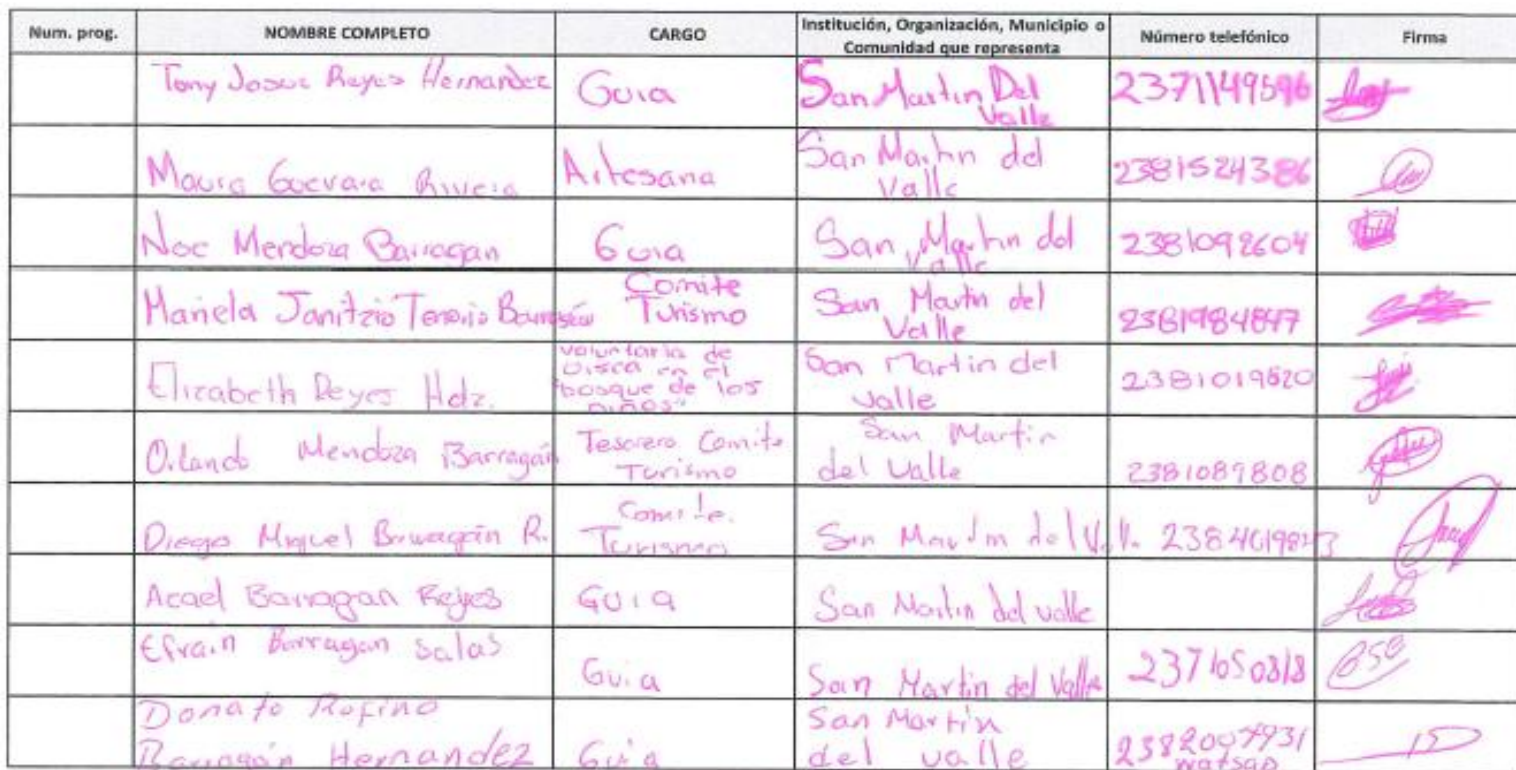 Num. prog. NOMBRE COMPLETO CARGO Institución, Organización, Municipio o Comunidad que representa Número telefónico Firma
Tony Josue Reyes Hernandez Guia San Martin Del Valle 2371149596
Maura Guevara Rivera Artesana San Martin del Valle 2381524386
Noe Mendoza Barragan Guia San Martin del Valle 2381092604
Mariela Janitzio Tenorio Barragán Comite Turismo San Martin del Valle 2381984847
Elizabeth Reyes Hdz. voluntaria de bisca en el "bosque de los niños" San Martin del Valle 2381019520
Orlando Mendoza Barragán Tesorero Comite Turismo San Martin del Valle 2381089808
Diego Miguel Barragán R. Comite. Turismo San Martin del Valle
Acael Barragan Reyes GUIA San Martin del valle
Efrain Barragan Salas Guia San Martin del Valle 2371050818
Donato Rofino Barragán Hernandez Guia San Martin del valle 2382007931 watsap